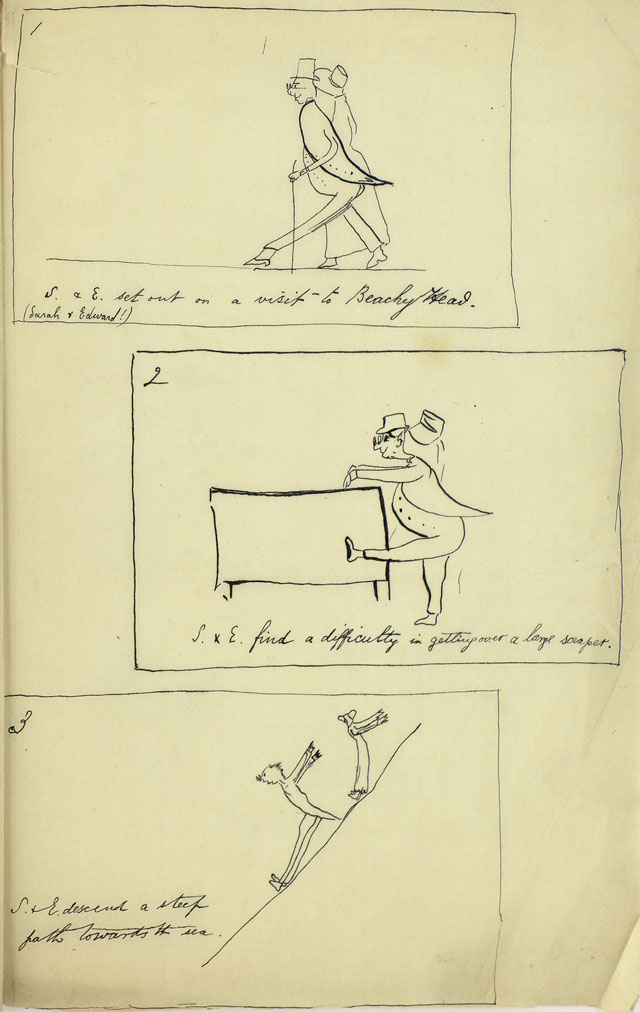 1
S. & E. set out on a visit to Beachy Head.
(Sarah & Edward!)
2
S. & E. find a difficulty in getting over a large scraper.
3
S. & E. descend a steep
path towards the sea.